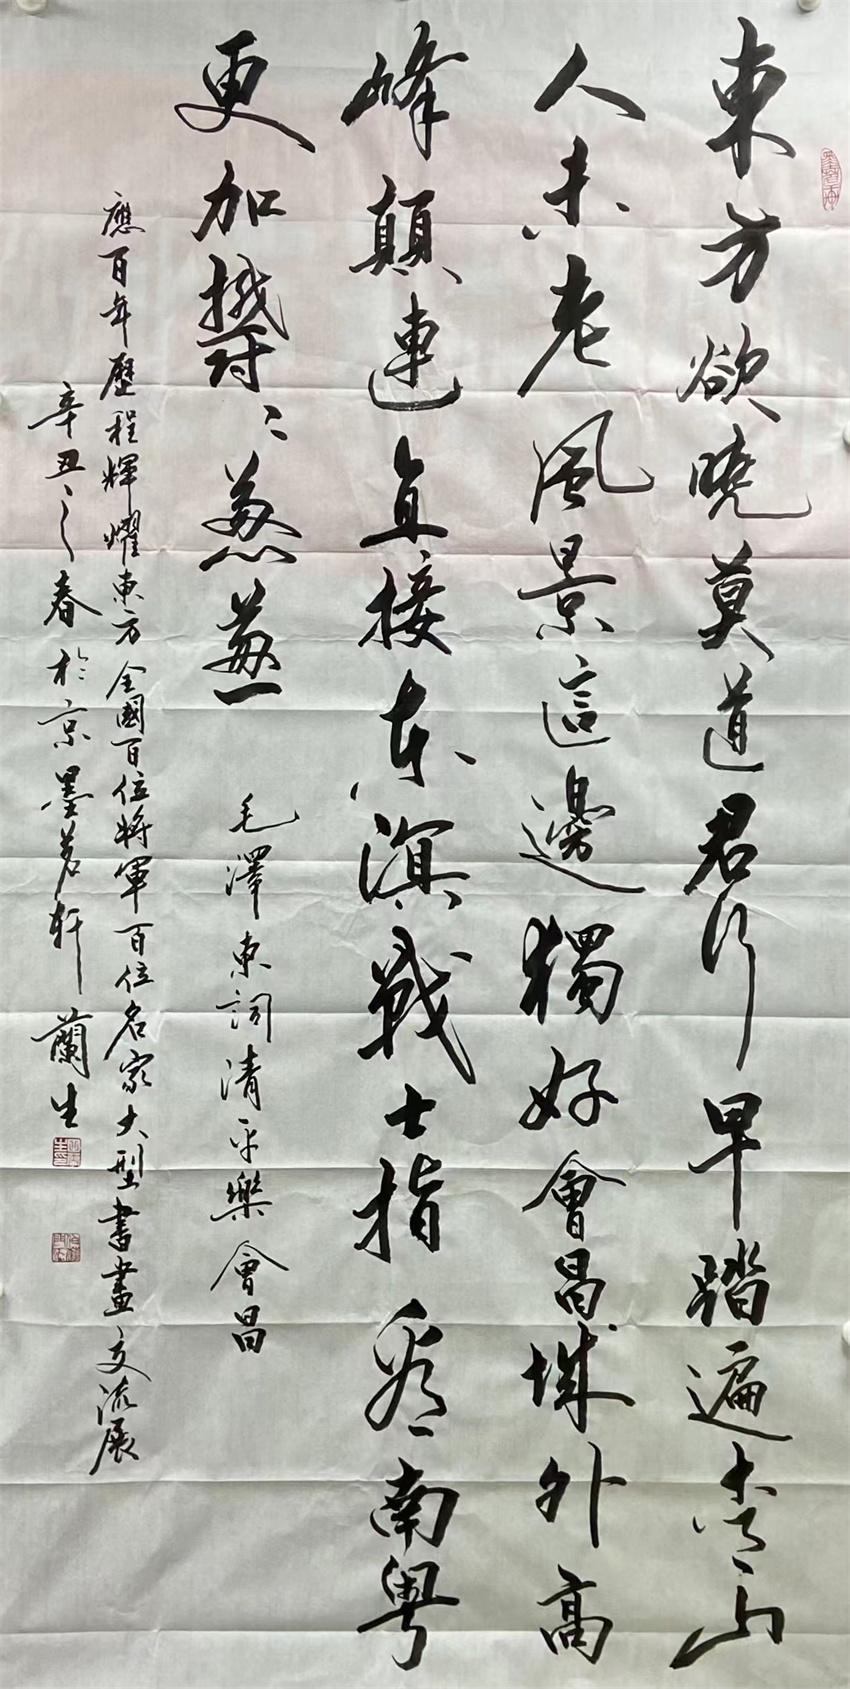 東方欲曉莫道君行早踏遍青山
人未老風景這邊獨好會昌城外高
峰顛連直接東溟戰士指看南粵
更加鬱〻葱葱
毛澤東詞清平樂會昌
應百年歷程輝耀東方全國百位將軍百位名家大型書畫交流展
辛丑之春於京墨茗軒蘭生